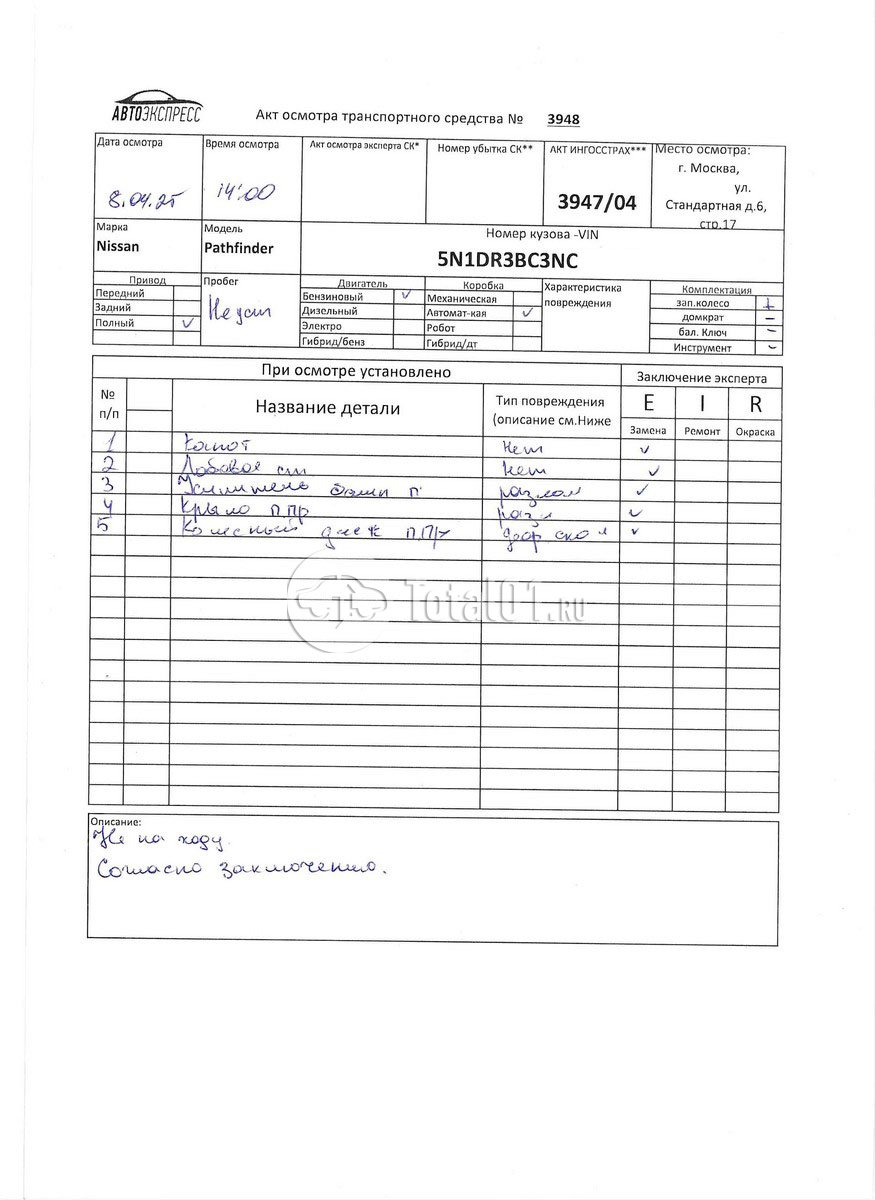 АВТОЭКСПРЕСС
Акт осмотра транспортного средства № 3948
Дата осмотра
8.04.25
Время осмотра
14:00
Акт осмотра эксперта СК*
Номер убытка СК**
АКТ ИНГОССТРАХ***
3947/04
Место осмотра:
г. Москва,
ул.
Стандартная д.6,
стр.17
Марка
Nissan
Модель
Pathfinder
Номер кузова -VIN
5N1DR3BC3NC
Привод
Передний
Задний
Полный ✓
Пробег
Двигатель
Бензиновый ✓
Дизельный
Электро
Гибрид/бенз
Коробка
Механическая
Автомат-кая ✓
Робот
Гибрид/дт
Характеристика
повреждения
Комплектация
зап.колесо +
домкрат –
бал. Ключ –
Инструмент –
При осмотре установлено
Заключение эксперта
№
п/п
Название детали
Тип повреждения
(описание см.Ниже
E I R
Замена Ремонт Окраска
1 Капот нет ✓
2 Лобовое ст нет ✓
3 Усилитель п разлом ✓
4 Крыло п.пр разл ✓
5 Колесный диск п.пр скол ✓
Total01.RU
Описание:
Не на ходу.
Согласно заключению.